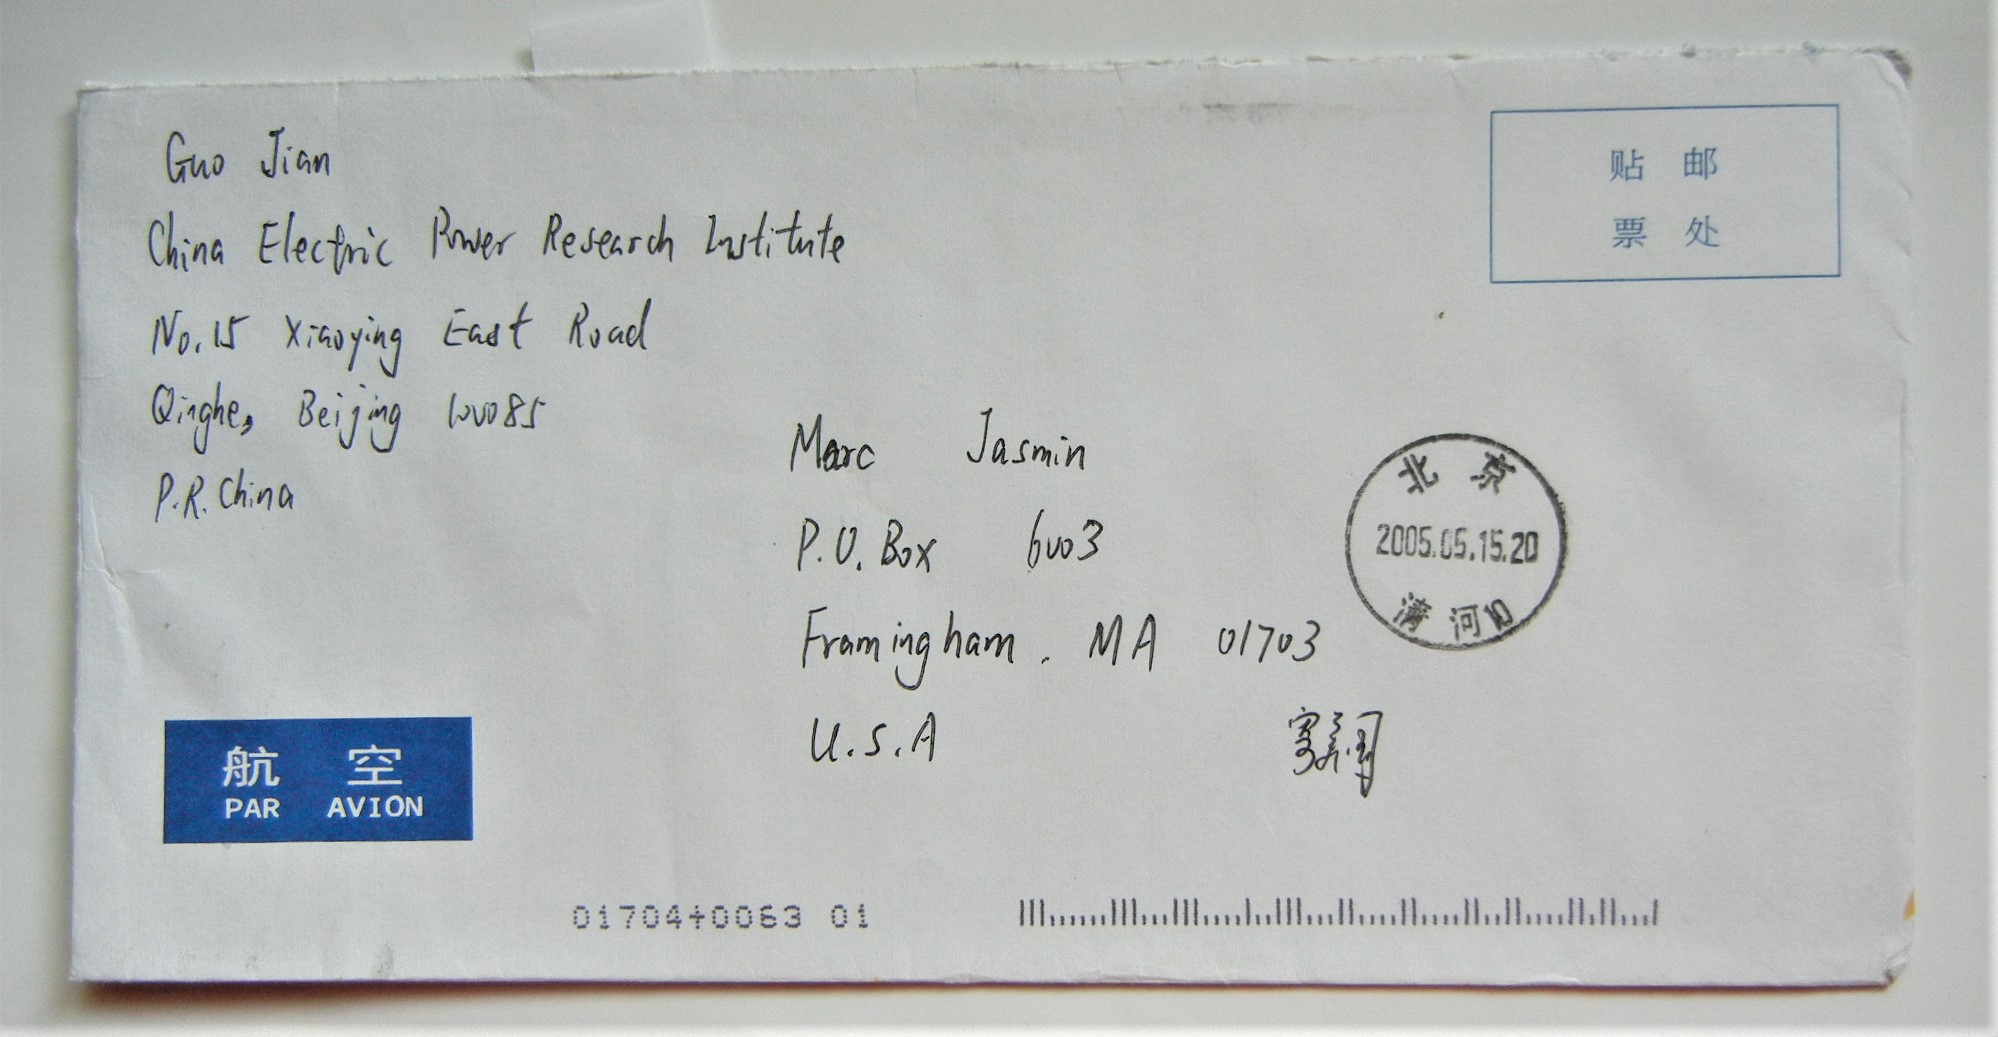 Guo Jian
China Electric Power Research Institute
No.15 Xiaoying East Road
Qinghe, Beijing 100085
P.R.China
贴 邮
票 处
Marc Jasmin
P.O.Box 6003
Framingham. MA 01703
U.S.A
北 京
2005.05.15.20
清 河 10
航 空
PAR AVION
01704+0063 01